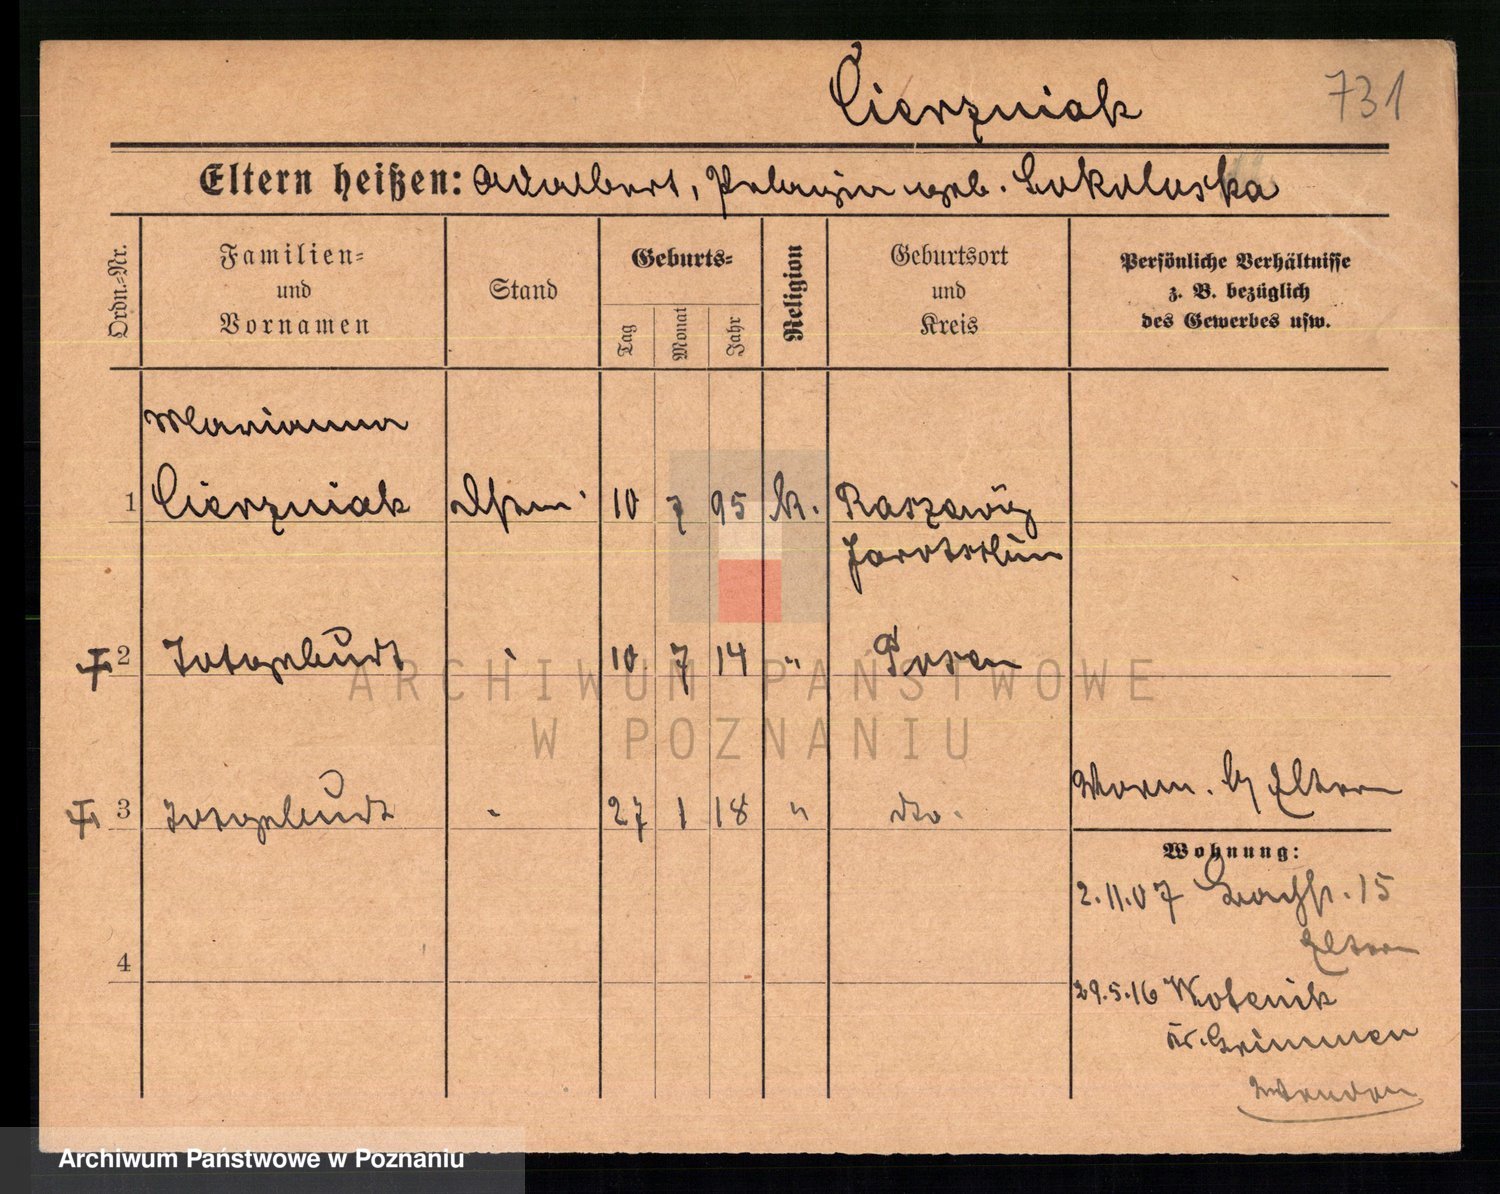 Cierzniak 731
Eltern heißen: Adalbert, Pelagia geb. Sokolovska
Ordn.-Nr.
Familien-
und
Vornamen
Stand
Geburts-
Tag
Monat
Jahr
Religion
Geburtsort
und
Kreis
Persönliche Verhältnisse
z. B. bezüglich
des Gewerbes usw.
Marianna
1 Cierzniak 10 7 95 k. Raszewy
Jarotschin
2 Totgeburt " 10 7 14 " Posen
3 Totgeburt " 27 1 18 " dto.
Worm. b/ Eltern
Wohnung:
2.11.07 15
Eltern
4
29.5.16 Wotenik
Kr. Grimmen
ARCHIWUM PAŃSTWOWE
W POZNANIU
Archiwum Państwowe w Poznaniu